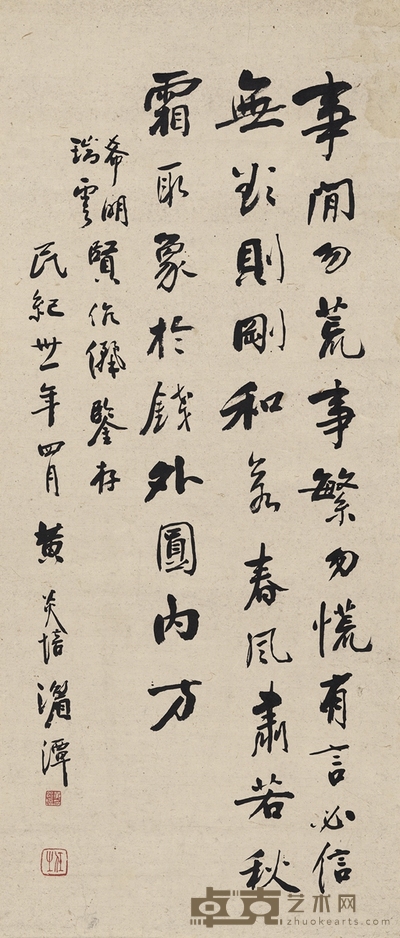 事閒勿荒事繁勿慌有言必信
無欲則剛和若春風肅若秋
霜取象於錢外圓內方
希明
瑞雲
賢伉儷鑒存
民紀卅一年四月 黃炎培 湄潭
任之
卓克艺术网
zhuokearts.com